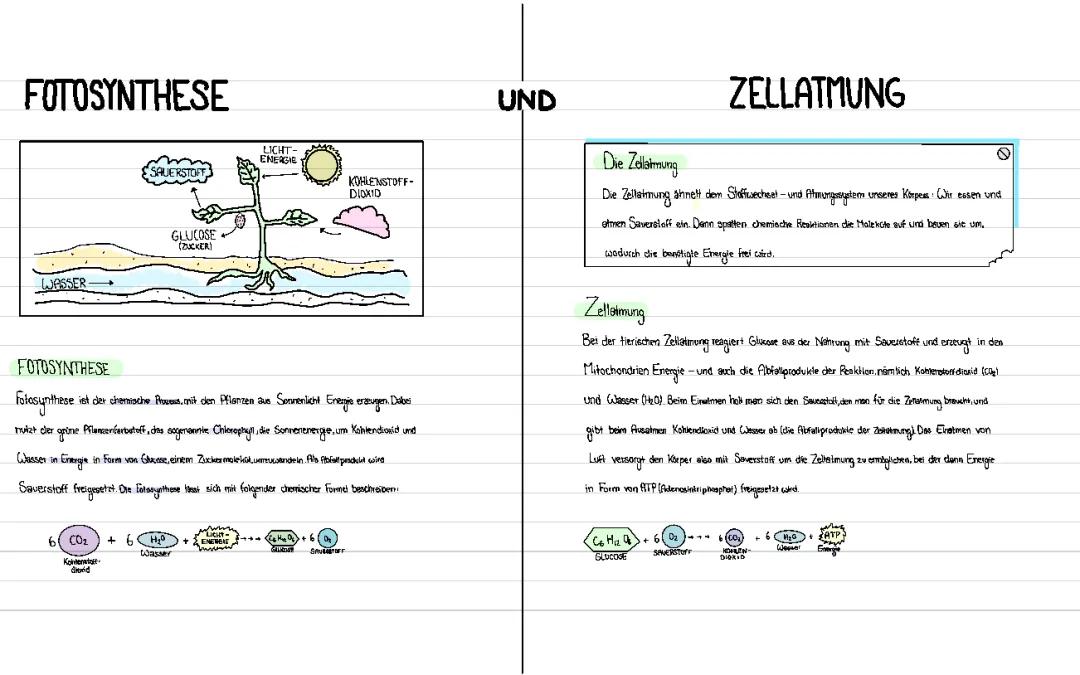 FOTOSYNTHESE
UND
ZELLATMUNG
LICHT-
ENERGIE
SAUERSTOFF
KOHLENSTOFF-
DIOXID
GLUCOSE
(ZUCKER)
WASSER
FOTOSYNTHESE
Fotosynthese ist der chemische Prozess, mit den Pflanzen aus Sonnenlicht Energie erzeugen. Dabei
nutzt der grüne Pflanzenfarbstoff, das sogenannte Chlorophyll, die Sonnenenergie, um Kohlendioxid und
Wasser in Energie in Form von Glucose, einem Zuckermolekül, umzuwandeln. Als Abfallprodukt wird
Sauerstoff freigesetzt. Die Fotosynthese lässt sich mit folgender chemischer Formel beschreiben:
6 CO₂ + 6 H₂O + LICHT-ENERGIE → C₆H₁₂O₆ + 6 O₂
Kohlenstoff-
dioxid
Wasser
GLUCOSE
SAUERSTOFF
Die Zellatmung
Die Zellatmung ähnelt dem Stoffwechsel- und Atmungssystem unseres Körpers: Wir essen und
atmen Sauerstoff ein. Dann spalten chemische Reaktionen die Moleküle auf und bauen sie um,
wodurch die benötigte Energie frei wird.
Zellatmung
Bei der tierischen Zellatmung reagiert Glucose aus der Nahrung mit Sauerstoff und erzeugt in den
Mitochondrien Energie - und auch die Abfallprodukte der Reaktion, nämlich Kohlenstoffdioxid (CO₂)
und Wasser (H₂O). Beim Einatmen holt man sich den Sauerstoff, den man für die Zellatmung braucht, und
gibt beim Ausatmen Kohlendioxid und Wasser ab (die Abfallprodukte der Zellatmung). Das Einatmen von
Luft versorgt den Körper also mit Sauerstoff um die Zellatmung zu ermöglichen, bei der dann Energie
in Form von ATP (Adenosintriphosphat) freigesetzt wird.
C₆H₁₂O₆ + 6 O₂ → 6 CO₂ + 6 H₂O + ATP
GLUCOSE
SAUERSTOFF
KOHLEN-
DIOXID
Wasser
Energie